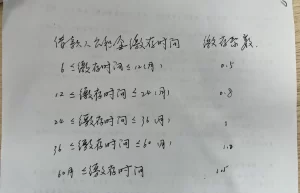 借款人公积金缴存时间 缴存系数
6≤缴存时间≤12(月) 0.5
12≤缴存时间≤24(月) 0.8
24≤缴存时间≤36(月) 1
36≤缴存时间≤60(月) 1.2
60月≤缴存时间 1.5